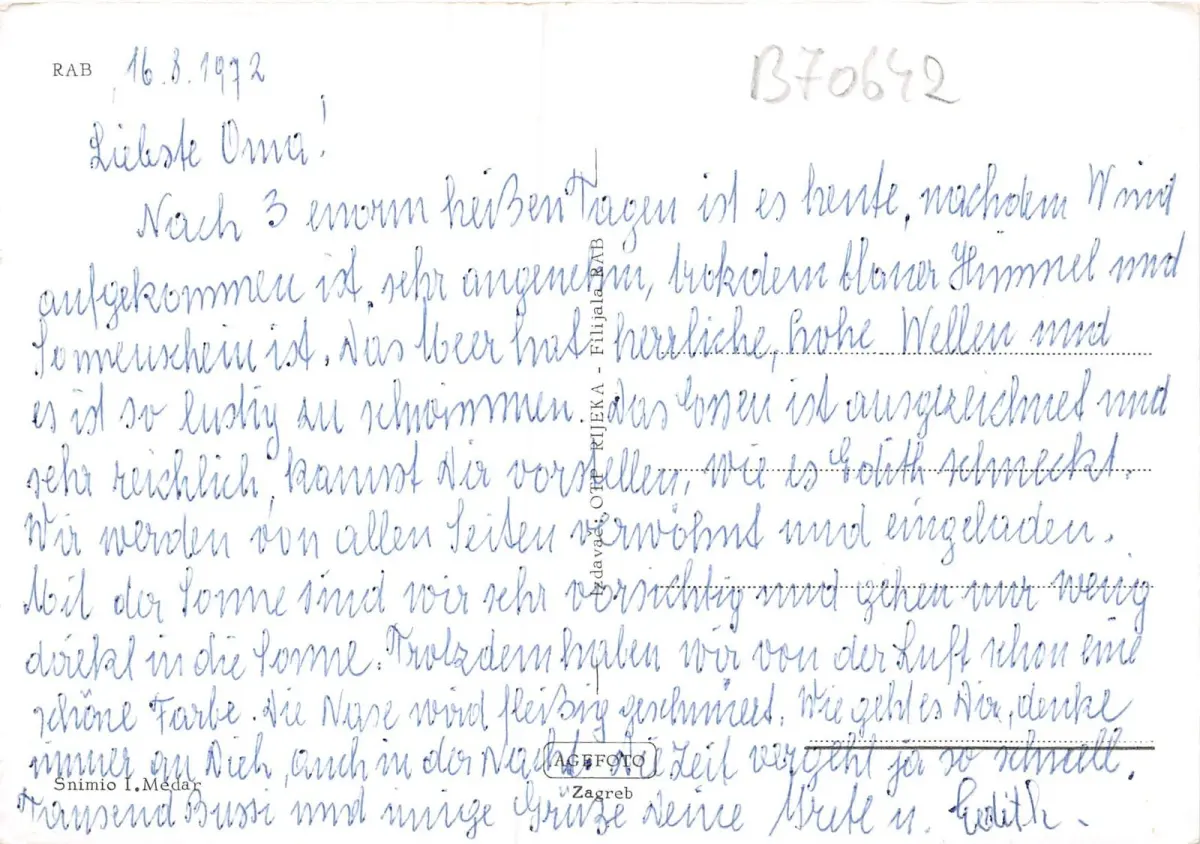 RAB 16.8.1972
B70642
Liebste Oma!
Nach 3 enorm heißen Tagen ist es heute, nachdem Wind
aufgekommen ist, sehr angenehm, trotzdem blauer Himmel und
Sonnenschein ist. Das Meer hat herrliche, hohe Wellen und
es ist so lustig zu schwimmen. Das Essen ist ausgezeichnet und
sehr reichlich, kannst Dir vorstellen, wie es Edith schmeckt.
Wir werden von allen Seiten verwöhnt und eingeladen.
Mit der Sonne sind wir sehr vorsichtig und gehen nur wenig
direkt in die Sonne. Trotzdem haben wir von der Luft schon eine
schöne Farbe. Die Nase wird fleißig geschmiert. Wie geht es Dir, denke
immer an Dich, auch in der Nacht. Die Zeit vergeht ja so schnell.
Tausend Bussi und innige Grüße Deine Grete u. Edith.
Izdavač: OTP RIJEKA - Filijala RAB
AGEFOTO
Zagreb
Snimio I. Medar